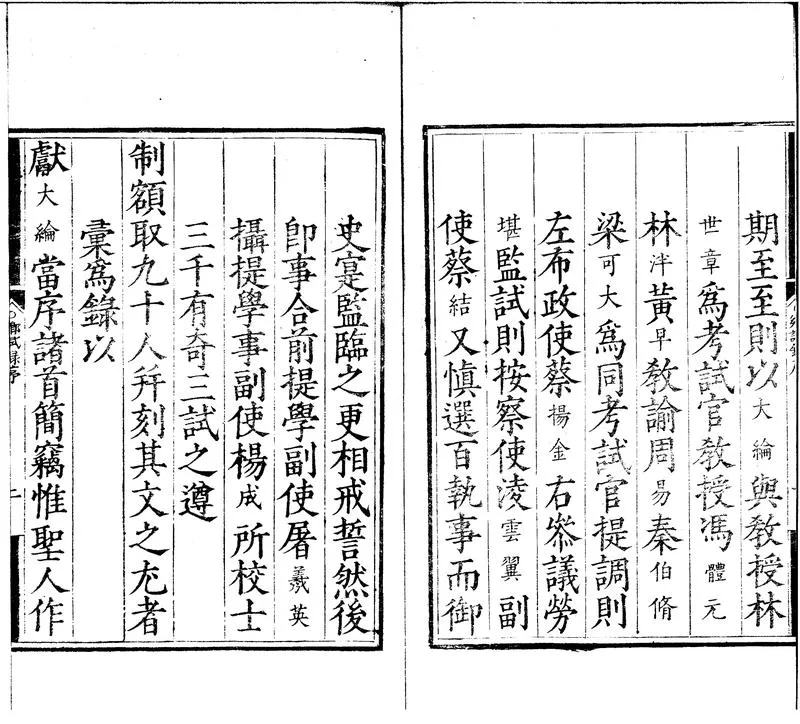 期至至則以大綸與教授林
世章爲考試官教授馮體元
林泮黃早教諭周易秦伯脩
梁可大爲同考試官提調則
左布政使蔡揚金右叅議勞
堪監試則按察使凌雲翼副
使蔡結又愼選百執事而御
史寔監臨之更相戒誓然後
卽事合前提學副使屠羲英
攝提學事副使楊成所校士
三千有奇三試之遵
制額取九十人幷刻其文之尤者
彙爲錄以
獻大綸當序諸首簡竊惟聖人作
鄉試錄序 二